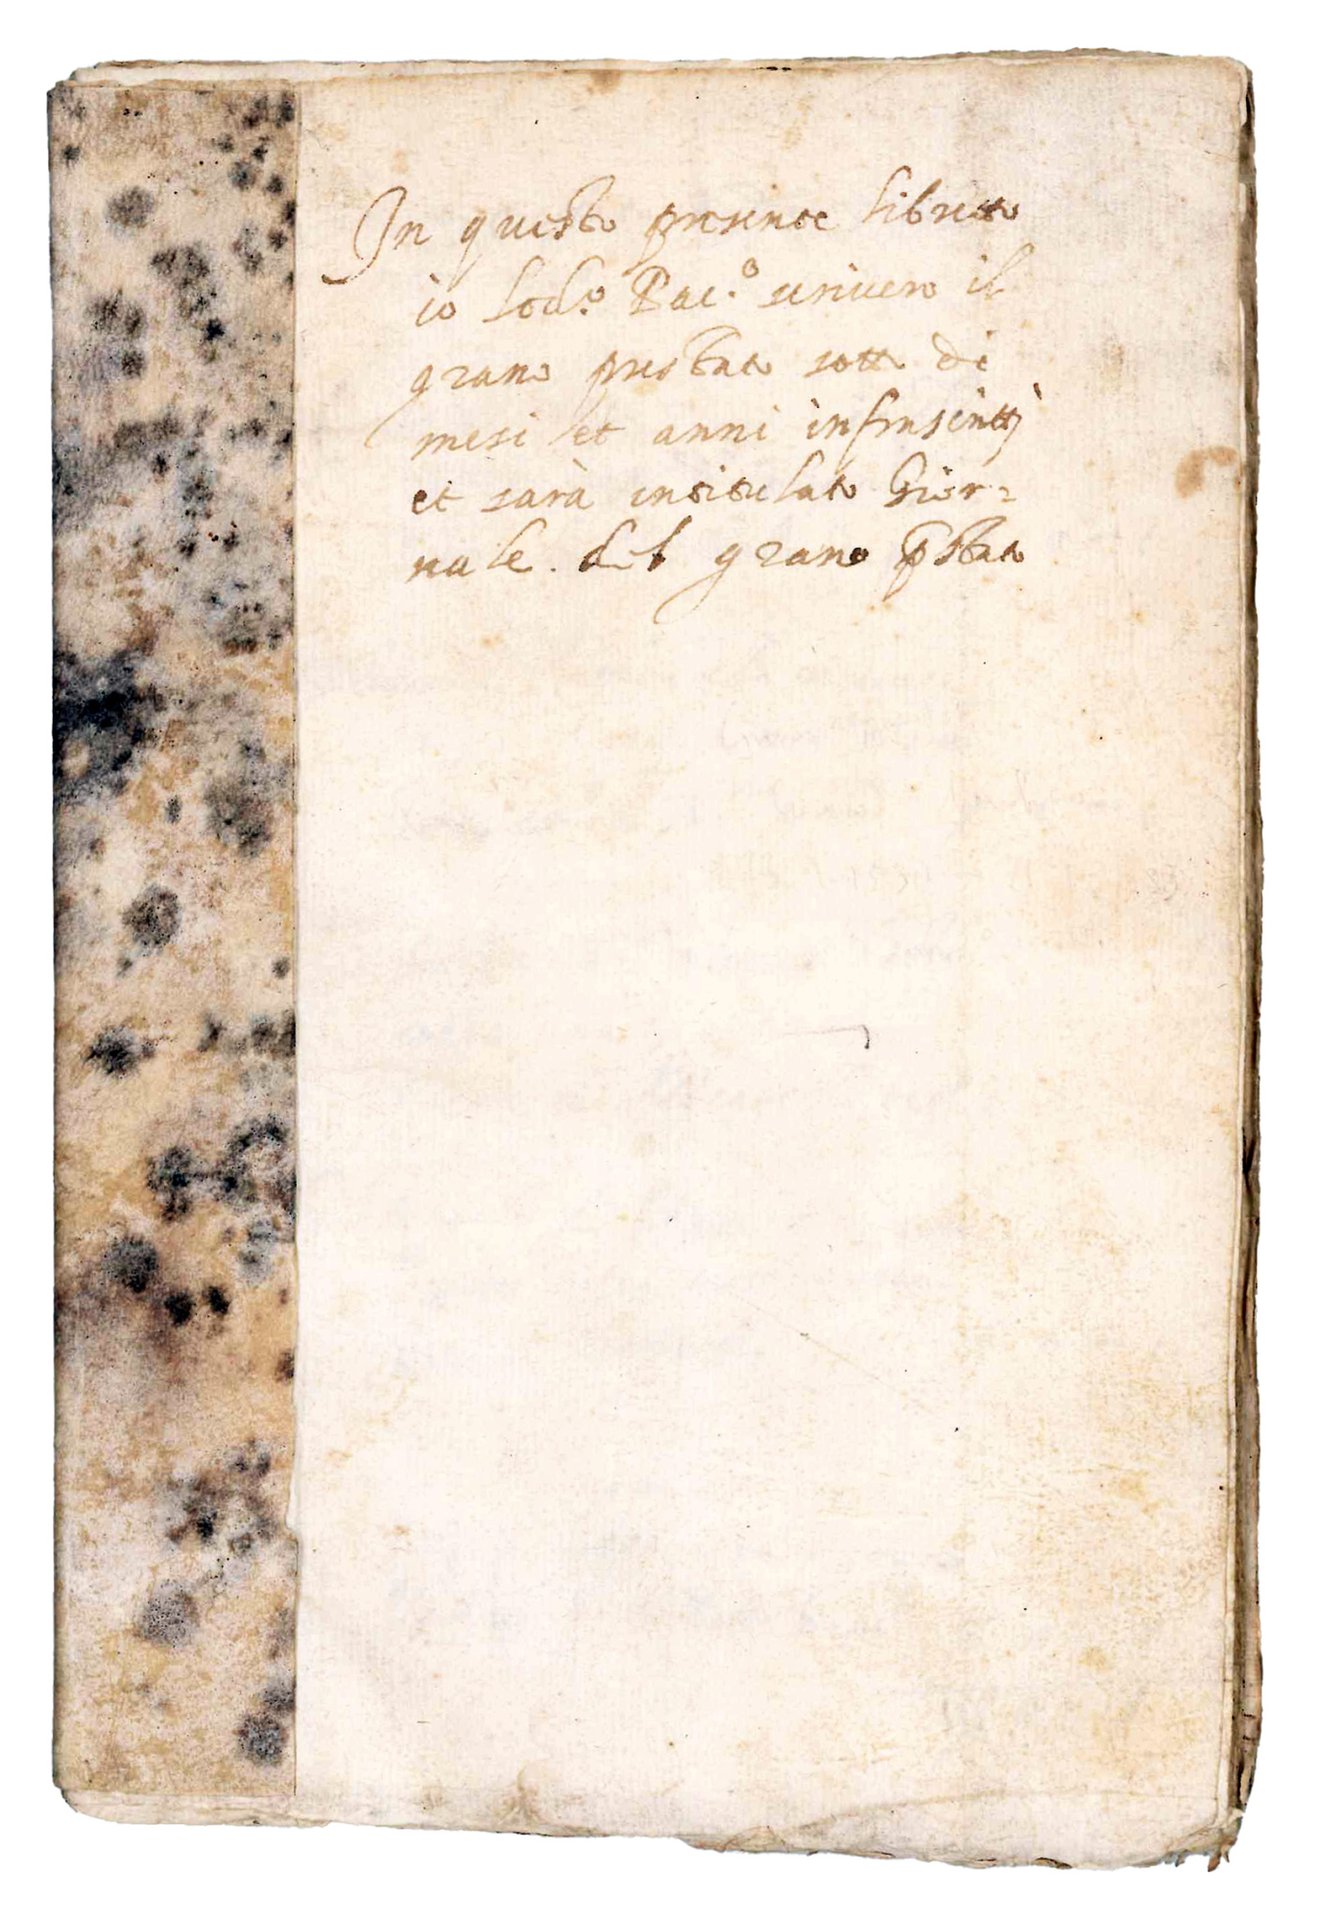 In questo presente libretto
io Lod.º Bac.º scrivero il
grano prestato sotto di
mesi et anni infrascritti
et sarà intitulato Gior=
nale del grano pstato